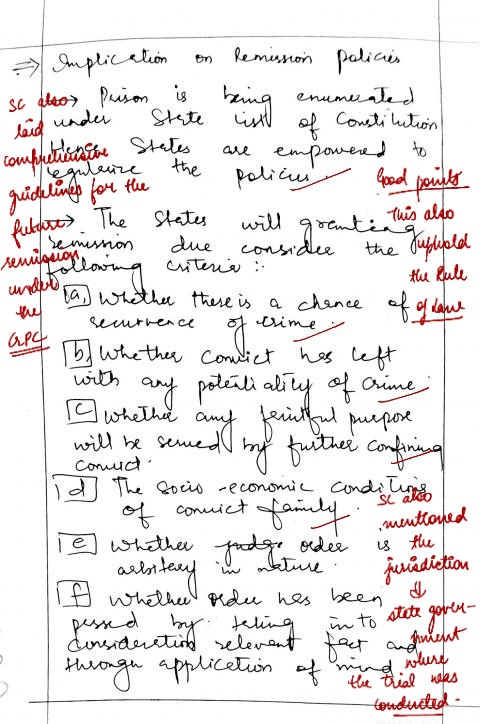 ⇒ Implication on Remission Policies
→ Prison is being enumerated
under State list of Constitution
Hence States are empowered to
regularize the policies.
→ The States will granting
remission due consider the
following criteria :-
(a) Whether there is a chance of
recurrence of crime.
(b) Whether convict has left
with any potentiality of crime.
(c) Whether any fruitful purpose
will be served by further confining
convict.
(d) The socio-economic conditions
of convict family.
(e) Whether judge order is
arbitrary in nature.
(f) Whether order has been
passed by taking in to
consideration relevent fact and
through application of mind
SC also
laid
comprehensive
guidelines for the
future
remission
under
the
CrPC
Good points
This also
uphold
the Rule
of Law
SC also
mentioned
the
jurisdiction
⇓
state gover-
nment
where
the trial was
conducted.